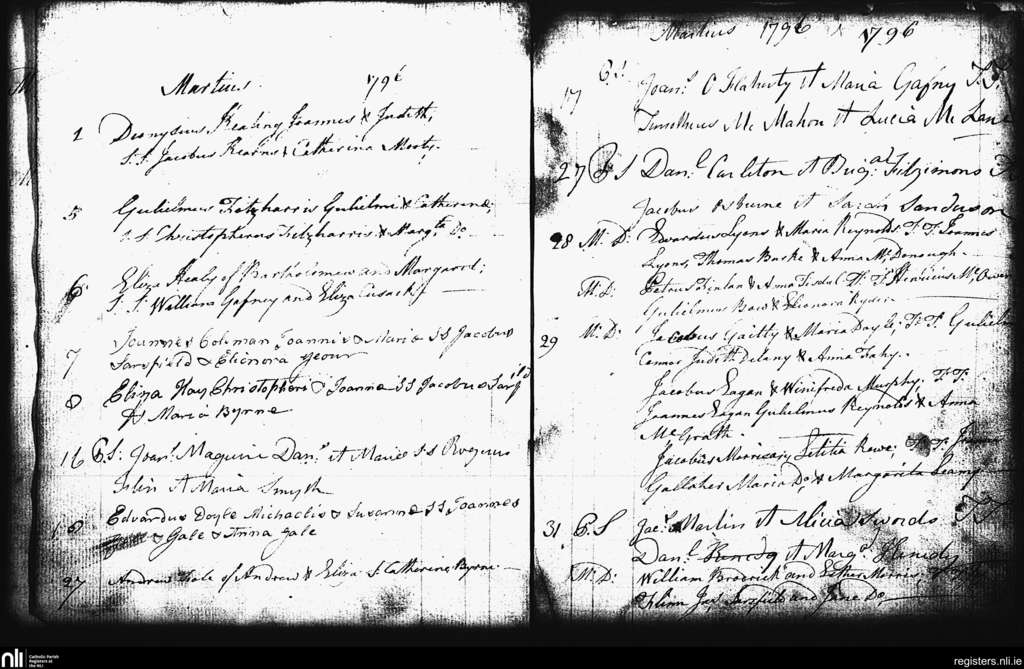 Martius 1796
1 Dionysius Keating Joannes & Judith,
S.S. Jacobus Kearns & Catherina Mooty.
5 Gulielmus Fitzharris Gulielmi & Catherina;
S.S Christopherus Fitzharris & Margta Do
6 Eliza Healy of Bartholomew and Margaret;
S.S. William Gafney and Eliza Cusack
7 Joannes Coleman Joannis & Maria SS Jacobus
Sarsfield & Elienora
8 Eliza Hay Christopheri & Joanna SS Jacobus
& Maria Byrne
16 P.S: Joans. Maguire Danl. et Maria S.S Rogerus
et Maria Smyth
18 Edvardus Doyle Michaelis & Susanna SS Joannes
& Gale & Anna Gale
27 Andrew Gale of Andrew & Eliza S. Catherine Byrne
Martius 1796 1796
17 P.S Joans. O Flaherty et Maria Gafny T.T.
Timotheus Mc Mahon et Lucia Mc Lane
27 P.S Danl. Carleton et Brigal Fitzimons
Jacobus Osburne et Sarah Sanduson
28 M: D: Edvardus Lyons & Maria Reynolds T. T. Joannes
Lyons, Thomas Burke & Anna Mc Donough
M: D: Petrus & Anna Tisdal T. T. Henricus Mc Owen
Gulielmus & Elienora Ryder
29 M: D: Jacobus Gaitly & Maria Doyle; T. T. Gulielm
Connor Judith Delany & Anna Fahy.
Jacobus Eagan & Winifreda Murphy. T. T.
Joannes Eagan Gulielmus Reynolds & Anna
Mc Grath.
Jacobus Morrisary Letitia Rowe, T. T.
Gallaher Maria Do, & Margarita Leamy
31 P.S Jacs. Martin et Alicia Swords T.T.
Danl. et Margat
M: D: William Brodrick and Esther Morris
Flinn Jas Sarsfield and Jane Do
nli Catholic Parish
Registers at
the NLI
registers.nli.ie